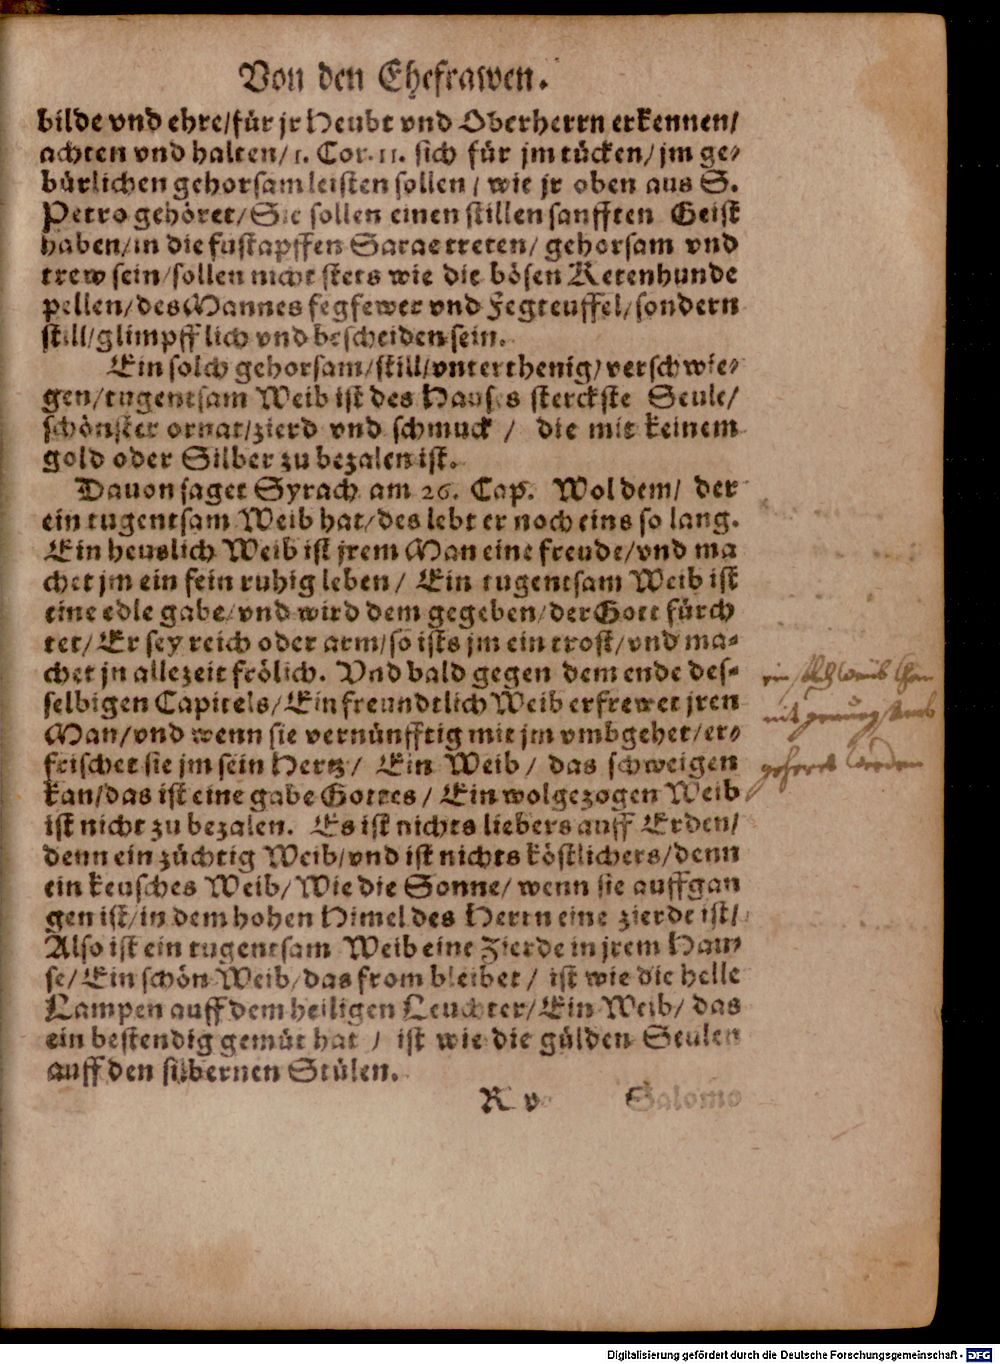 Von den Ehefrawen.
bilde vnd ehre/für jr Heubt vnd Oberherrn erkennen/
achten vnd halten/1. Cor. 11. sich für jm tücken/jm ge-
bürlichen gehorsam leisten sollen/ wie jr oben aus S.
Petro gehöret/Sie sollen einen stillen sanfften Geist
haben/in die fustapffen Sarae tretten/ gehorsam vnd
trew sein/sollen nicht stets wie die bösen Ketenhunde
pellen/des Mannes fegfewer vnd Fegteuffel/sondern
still/glimpfflich vnd bescheiden sein.
Ein solch gehorsam/still/vnterthenig/verschwie-
gen/tugentsam Weib ist des Hauses sterckste Seule/
schönster ornat/zierd vnd schmuck/ die mit keinem
gold oder Silber zu bezalen ist.
Dauon saget Syrach am 26. Cap. Wol dem/ der
ein tugentsam Weib hat/des lebt er noch eins so lang.
Ein heuslich Weib ist jrem Man eine freude/vnd ma
chet jm ein fein ruhig leben/ Ein tugentsam Weib ist
eine edle gabe/vnd wird dem gegeben/der Gott fürch
tet/ Er sey reich oder arm/so ists jm ein trost/vnd ma-
chet jn allezeit frölich. Vnd bald gegen dem ende des-
selbigen Capitels/Ein freundtlich Weib erfrewet jren
Man/vnd wenn sie vernünfftig mit jm vmbgehet/er-
frischet sie jm sein Hertz/ Ein Weib/ das schweigen
kan/das ist eine gabe Gottes/ Ein wolgezogen Weib
ist nicht zu bezalen. Es ist nichts liebers auff Erden/
denn ein züchtig Weib/vnd ist nichts köstlichers/denn
ein keusches Weib/Wie die Sonne/ wenn sie auffgan
gen ist/in dem hohen Himel des Herrn eine zierde ist/
Also ist ein tugentsam Weib eine Zierde in jrem Hau-
se/Ein schön Weib/das from bleibet/ ist wie die helle
Lampen auff dem heiligen Leuchter/Ein Weib/ das
ein bestendig gemüt hat/ ist wie die gülden Seulen
auff den silbernen Stülen.
R v Salomo
ein
mit
Digitalisierung gefördert durch die Deutsche Forschungsgemeinschaft - DFG